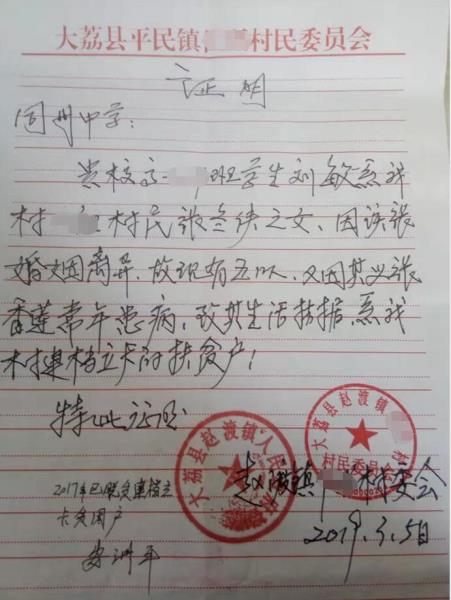 大荔县平民镇 村民委员会
证明
同州中学:
贵校高一 班学生刘敏系我
村 村民张冬侠之女、因该张
婚姻离异 故现有 又因其 张
香莲常年患病、致其生活拮据、系我
村建档立卡的扶贫户!
特此证明
大荔县赵渡镇人民
大荔县赵渡镇
村民委员会
赵渡镇 村委会
2019.3.5日
2017年已脱贫建档立
卡贫困户